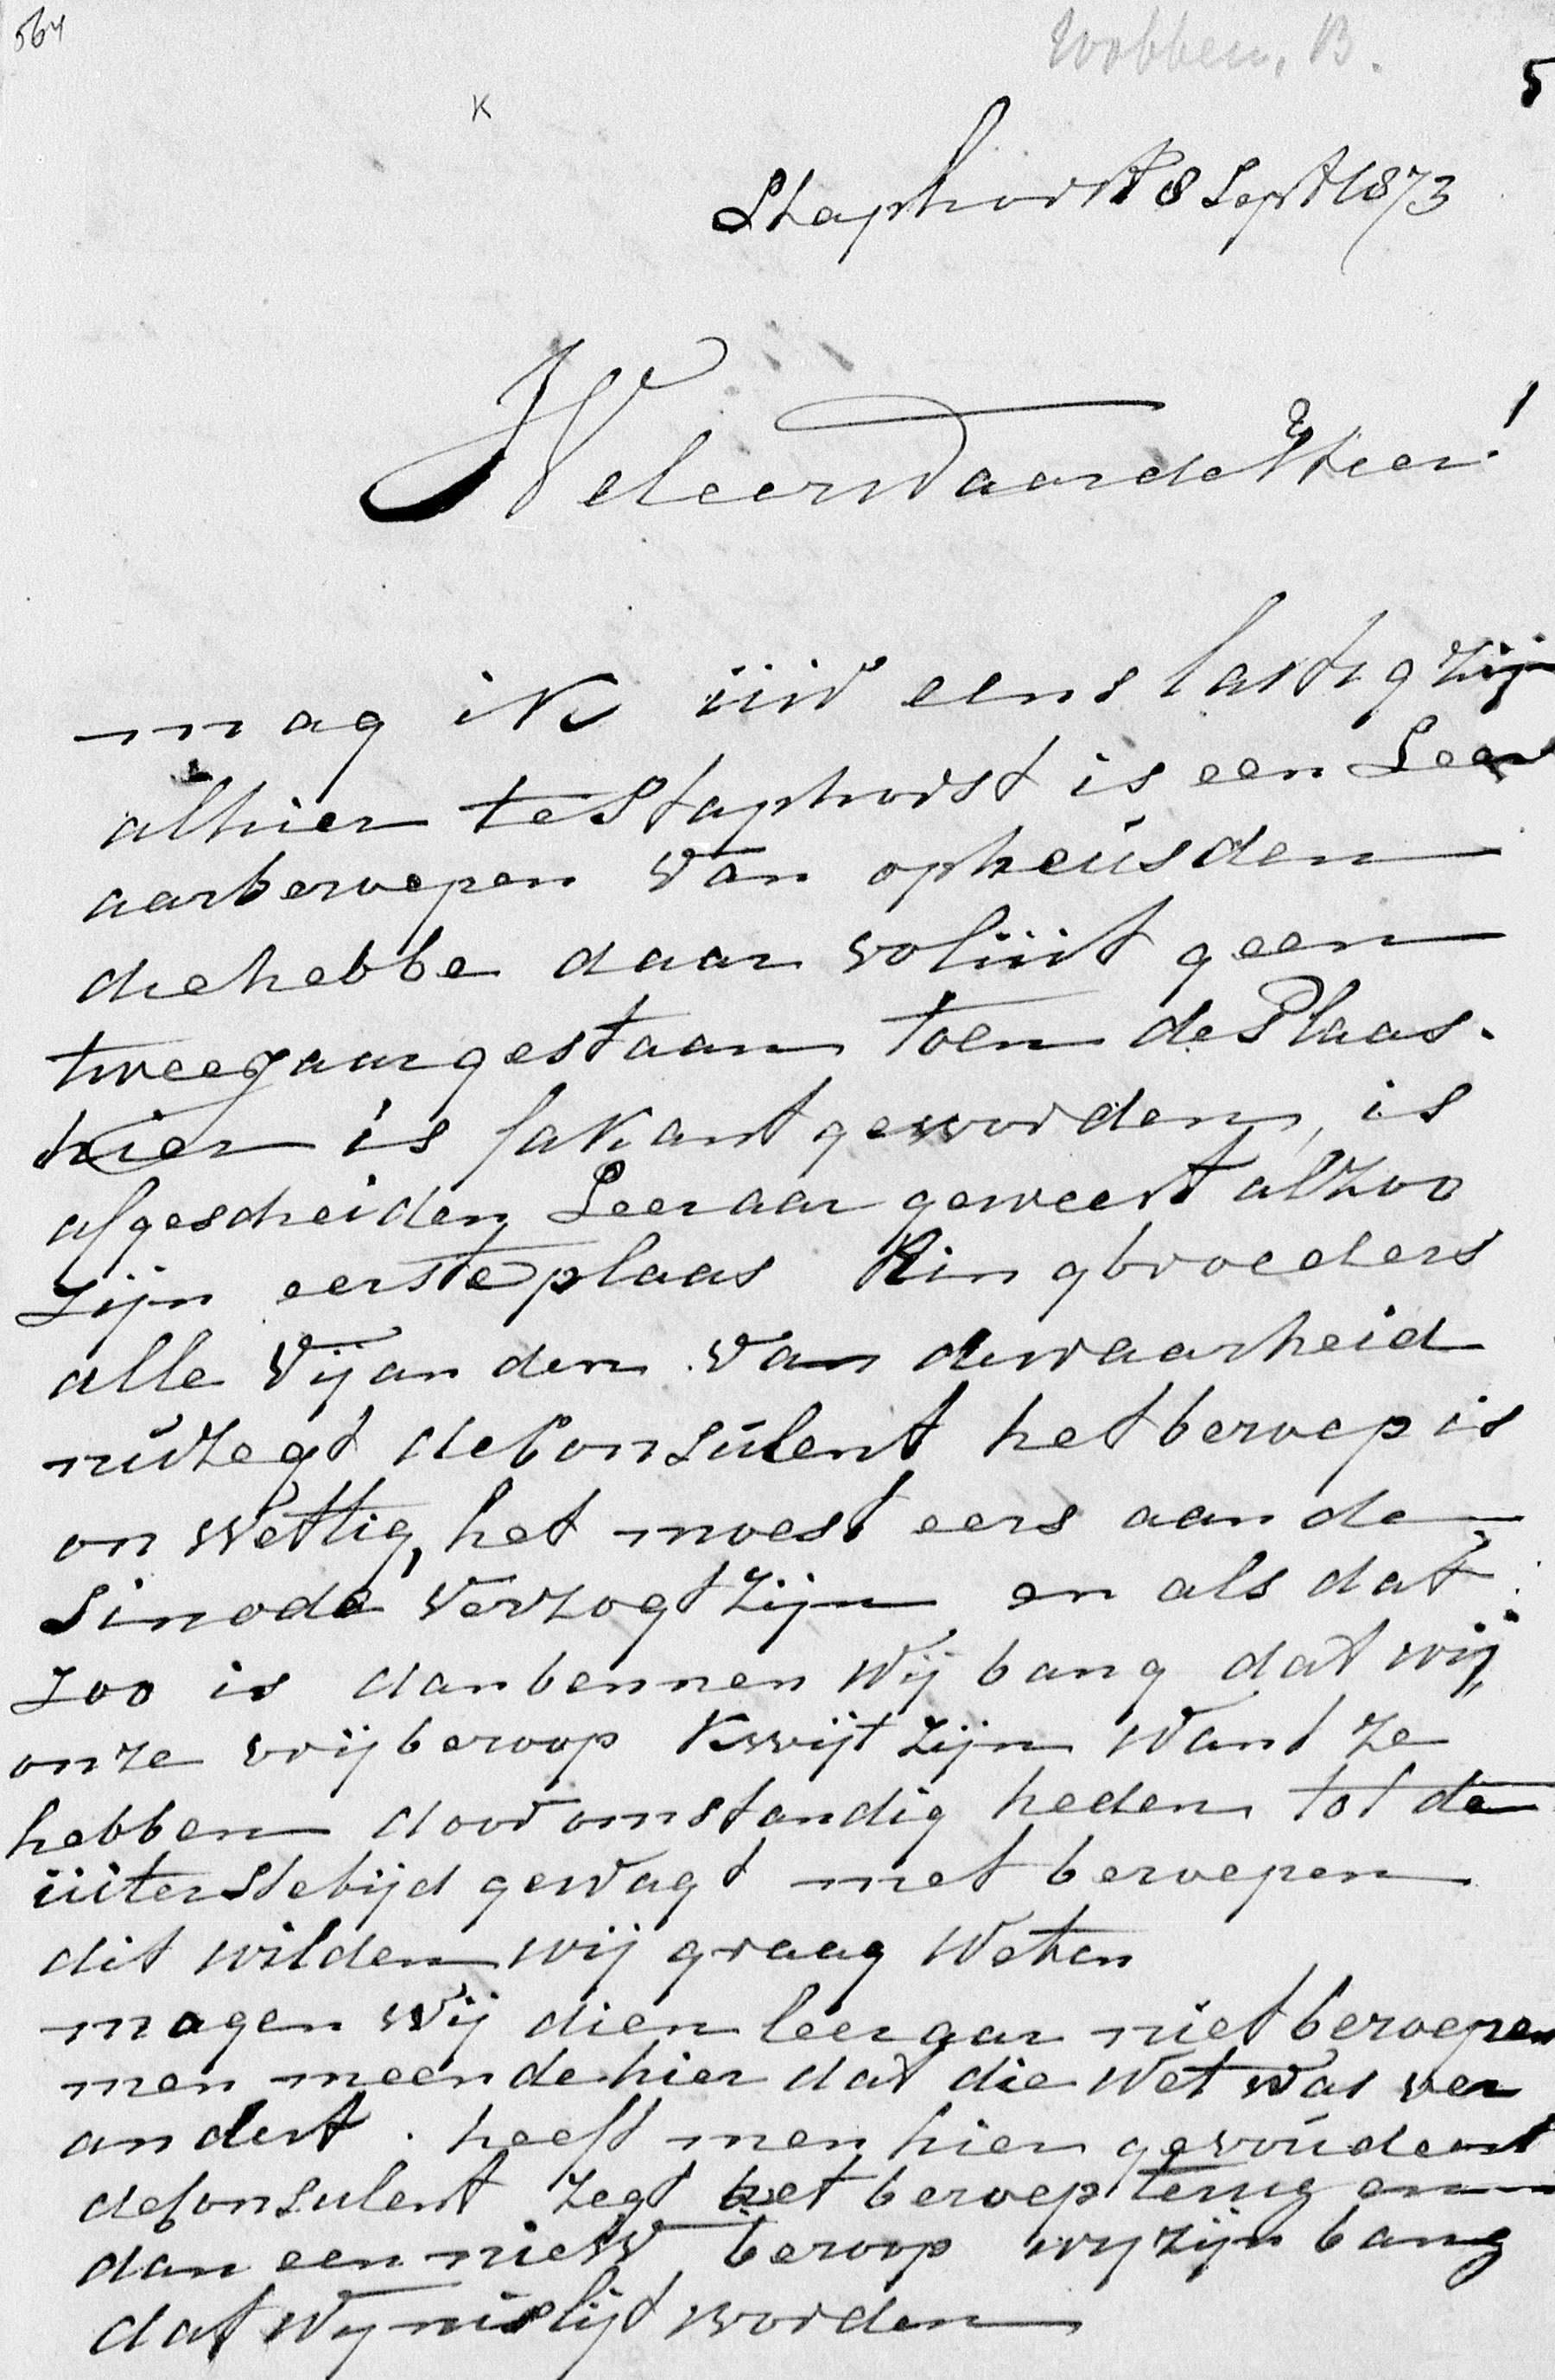 564
Wobben, B.
5
K
Staphorst 8 Sept 1873
WeleerWaarde Heer!
mag ik uw eens lastig zijn
alhier te Staphorst is een Leer
aar beroepen van opheusden
die hebbe daar voluit geen
twee jaar gestaan toen de Plaas
hier is fakant geworden, is
afgescheiden Leeraar geweest alzoo
zijn eerste plaas Ringbroeders
alle vijanden van de waarheid
nu zegt de Consulent het beroep is
on wettig, het moest eers aan de
Sinode verzogt zijn en als dat
zoo is dan bennen wij bang dat wij
onze vrijberoop kwijt zijn want ze
hebben door omstandig heden tot de
uiterste tijd gewagt met beroepen
dit wilden wij graag weten
mogen wij dien leeraar niet beroepen
men meende hier dat die wet was ver
andert. heeft men hier
de Consulent zegt het beroep terug en
dan een niew beroop wij zijn bang
dat wij mislijt worden